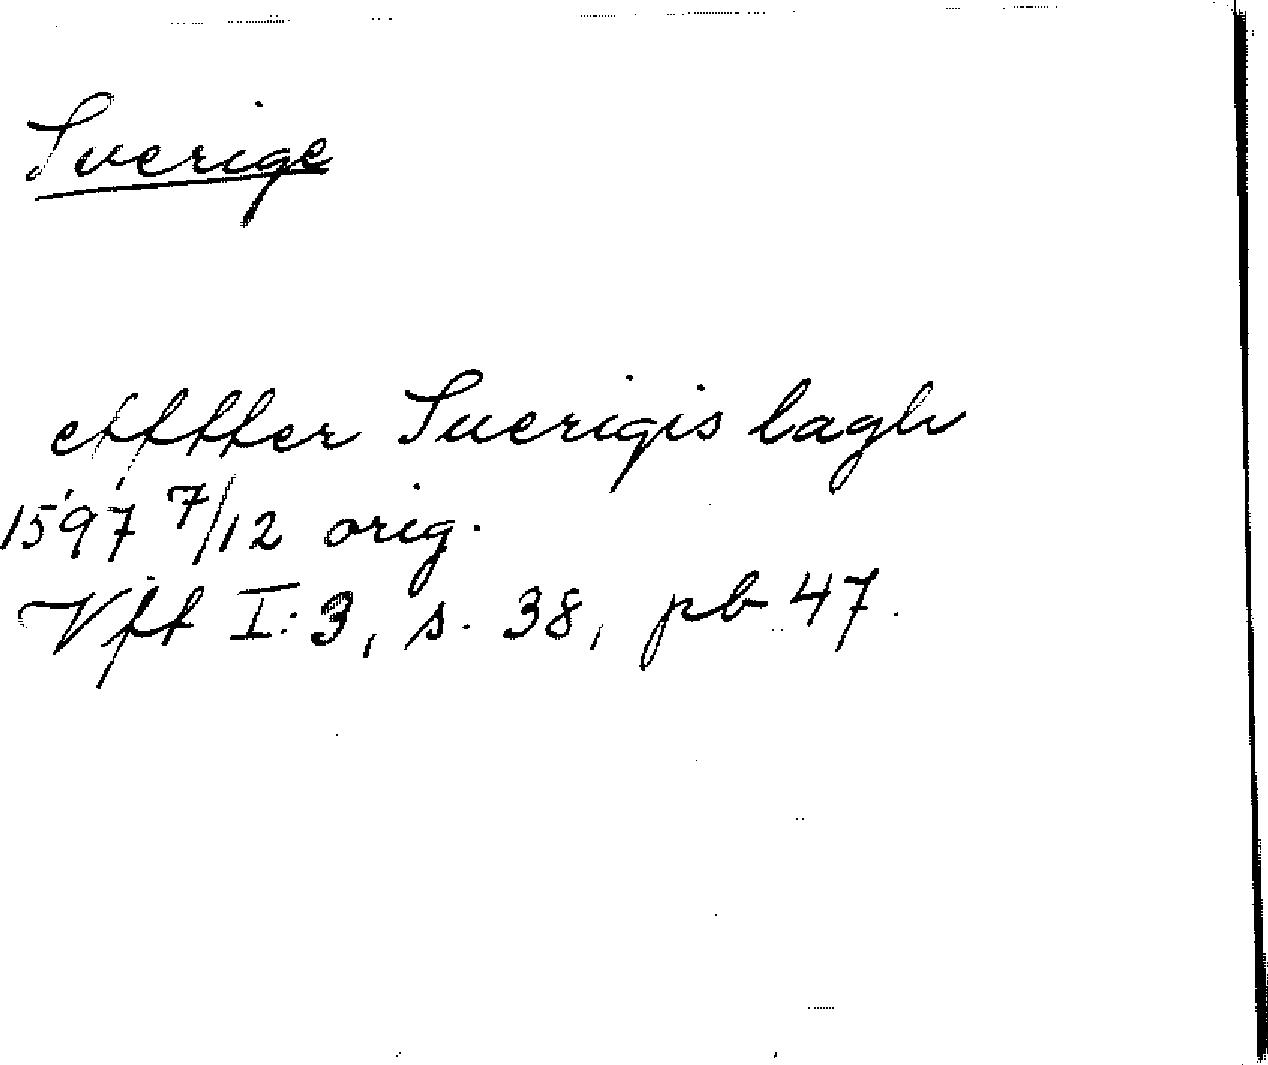 Sverige
effther Suerigis lagh
1597 7/12 orig.
Vft I:3, s. 38, pb 47.